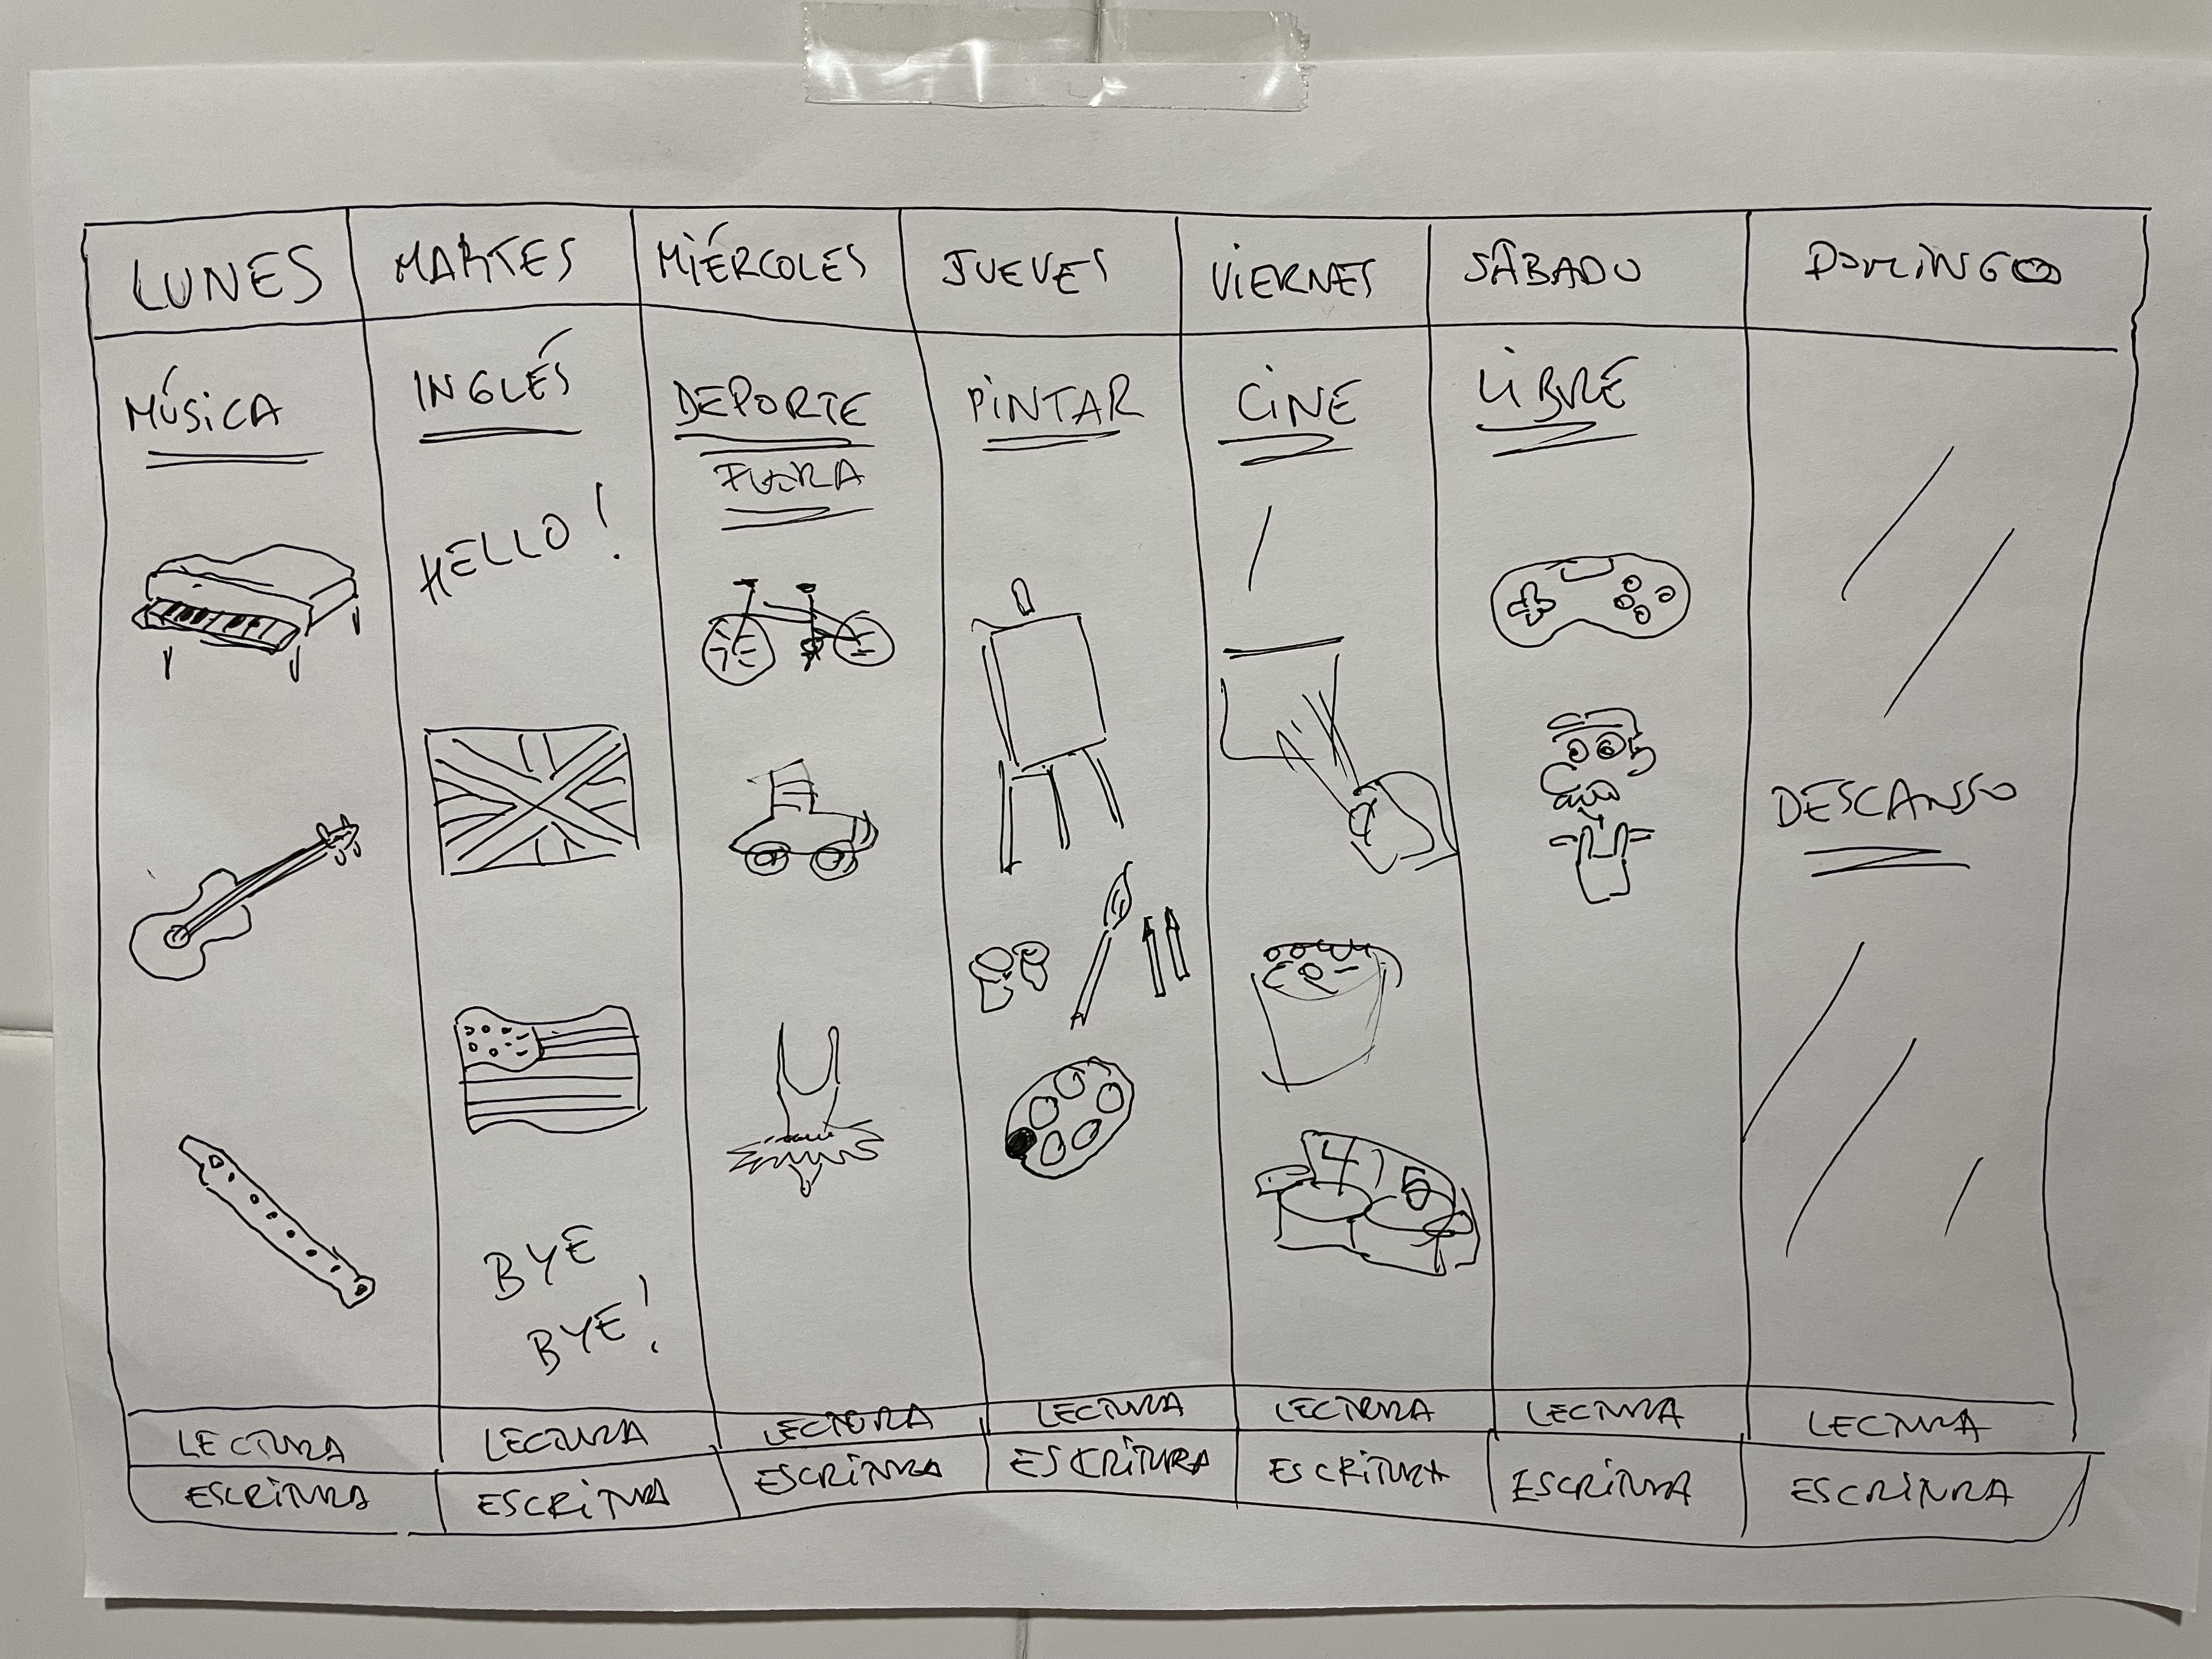 LUNES MARTES MIÉRCOLES JUEVES VIERNES SÁBADO DOMINGO
MÚSICA INGLÉS DEPORTE PINTAR CINE LIBRE
FUERA
HELLO!
DESCANSSO
4 5
BYE
BYE!
LECTURA LECTURA LECTURA LECTURA LECTURA LECTURA LECTURA
ESCRITURA ESCRITURA ESCRITURA ESCRITURA ESCRITURA ESCRITURA ESCRITURA